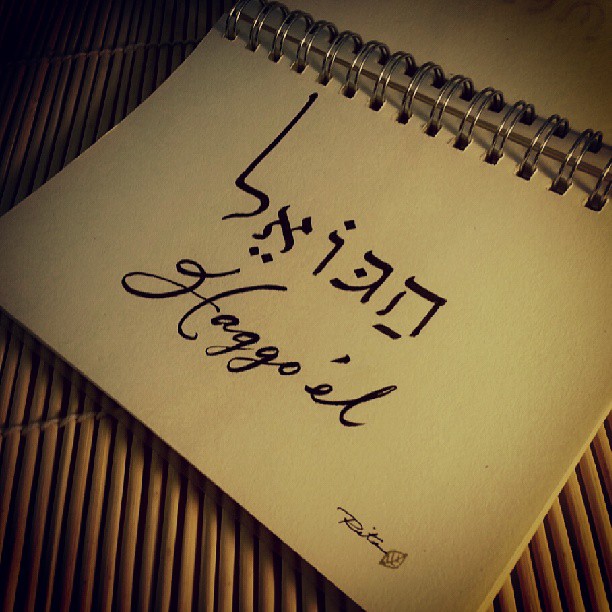 הַגּוֹאֵל
Haggo'el
Rita